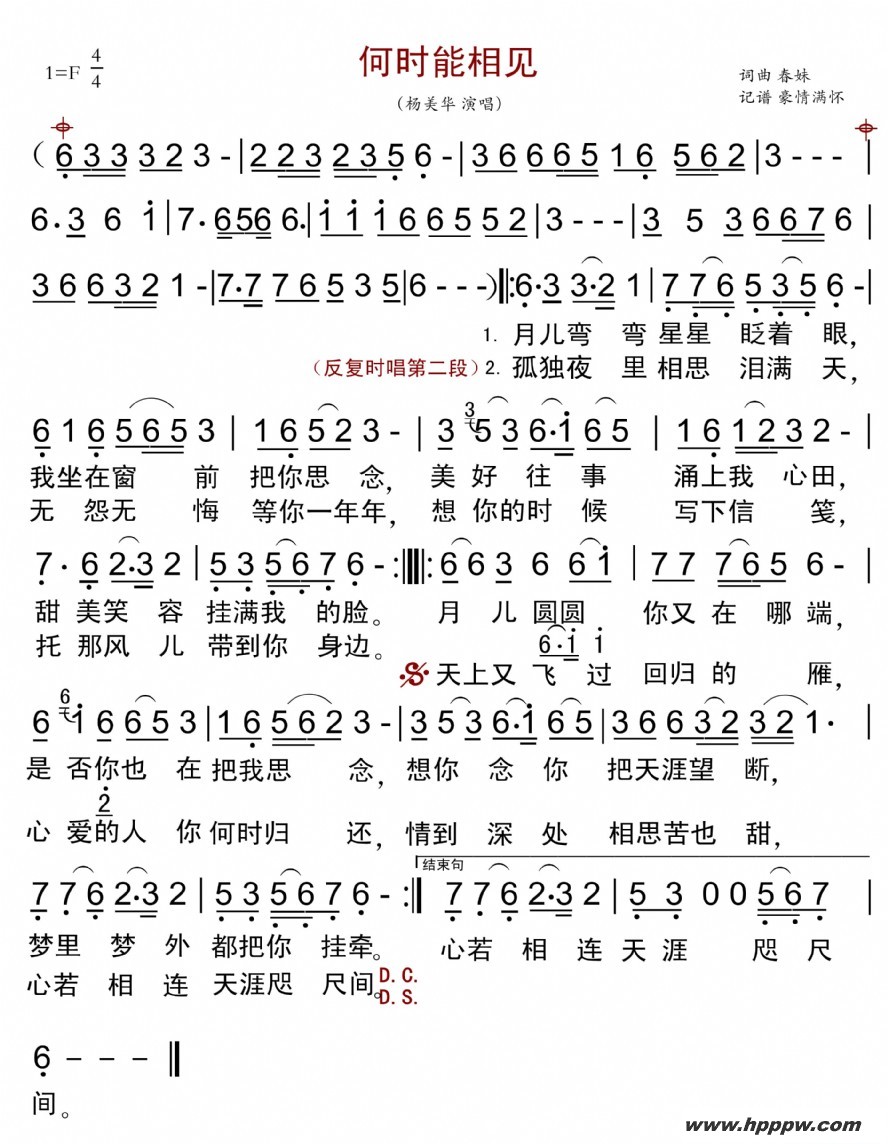 何时能相见
1=F 4/4
（杨美华 演唱）
词曲 春妹
记谱 豪情满怀
( 6 3 3 3 2 3 - | 2 2 3 2 3 5 6 - | 3 6 6 6 5 1 6 5 6 2 | 3 - - - |
6 · 3 6 i | 7 · 6 5 6 6 · | i i i 6 6 5 5 2 | 3 - - - | 3 5 3 6 6 7 6 |
3 6 6 3 2 1 - | 7 · 7 7 6 5 3 5 | 6 - - - ) ‖: 6 · 3 3 · 2 1 | 7 7 6 5 3 5 6 - |
1. 月儿弯 弯 星星 眨着 眼，
（反复时唱第二段）2. 孤独夜 里 相思 泪满 天，
6 1 6 5 6 5 3 | 1 6 5 2 3 - | 3 3 5 3 6 · i 6 5 | 1 6 1 2 3 2 - |
我坐在窗 前 把你思 念， 美 好 往 事 涌上我 心田，
无 怨无 悔 等你一年年， 想 你的时 候 写下信 笺，
7 · 6 2 · 3 2 | 5 3 5 6 7 6 - :‖: 6 6 3 6 6 i | 7 7 7 6 5 6 - |
甜 美笑 容 挂满我 的脸。 月 儿 圆圆 你又 在 哪端，
托 那风 儿 带到你 身边。 6 · i i
天上又 飞 过 回归 的 雁，
6 6 i 6 6 5 3 | 1 6 5 6 2 3 - | 3 5 3 6 · i 6 5 | 3 6 6 3 2 3 2 1 · |
是 否你也 在 把我思 念， 想你 念 你 把天涯望 断，
2
心 爱的人 你 何时归 还， 情到 深 处 相思苦也 甜，
结束句
7 7 6 2 · 3 2 | 5 3 5 6 7 6 - :‖ 7 7 6 2 · 3 2 | 5 3 0 0 5 6 7 |
梦里 梦 外 都把你 挂牵。 心若 相 连 天涯 咫 尺
心若 相 连 天涯咫 尺间。 D.C.
D.S.
6 - - - ‖
间。
www.hpppw.com